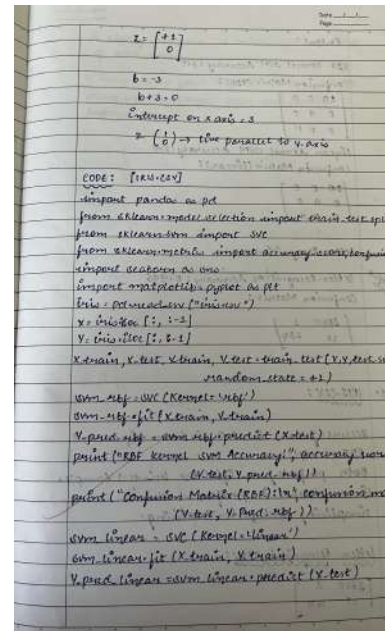 Date / /
Page
z = [+1
0]
b = -3
b + 3 = 0
intercept on x axis = 3
z = (1 0) → line parallel to y-axis
CODE: [IRIS.CSV]
import pandas as pd
from sklearn.model_selection import train_test_spl
from sklearn.svm import SVC
from sklearn.metrics import accuracy_score, confusion
import seaborn as sns
import matplotlib.pyplot as plt
iris = pd.read_csv ("iris.csv")
X = iris.iloc [:, :-1]
Y = iris.iloc [:, :-1]
X_train, X_test, Y_train, Y_test = train_test (X, Y, test_s
random_state = 42)
svm_rbf = SVC (Kernel = 'rbf')
svm_rbf.fit (X_train, Y_train)
Y_pred_rbf = svm_rbf.predict (X_test)
print ("RBF Kernel SVM Accuracy:", accuracy_scor
(Y_test, Y_pred_rbf))
print ("Confusion Matrix (RBF):\n", confusion_ma
(Y_test, Y_Pred_rbf))
svm_linear = SVC (Kernel = 'linear')
svm_linear.fit (X_train, Y_train)
Y_pred_linear = svm_linear.predict (X_test)